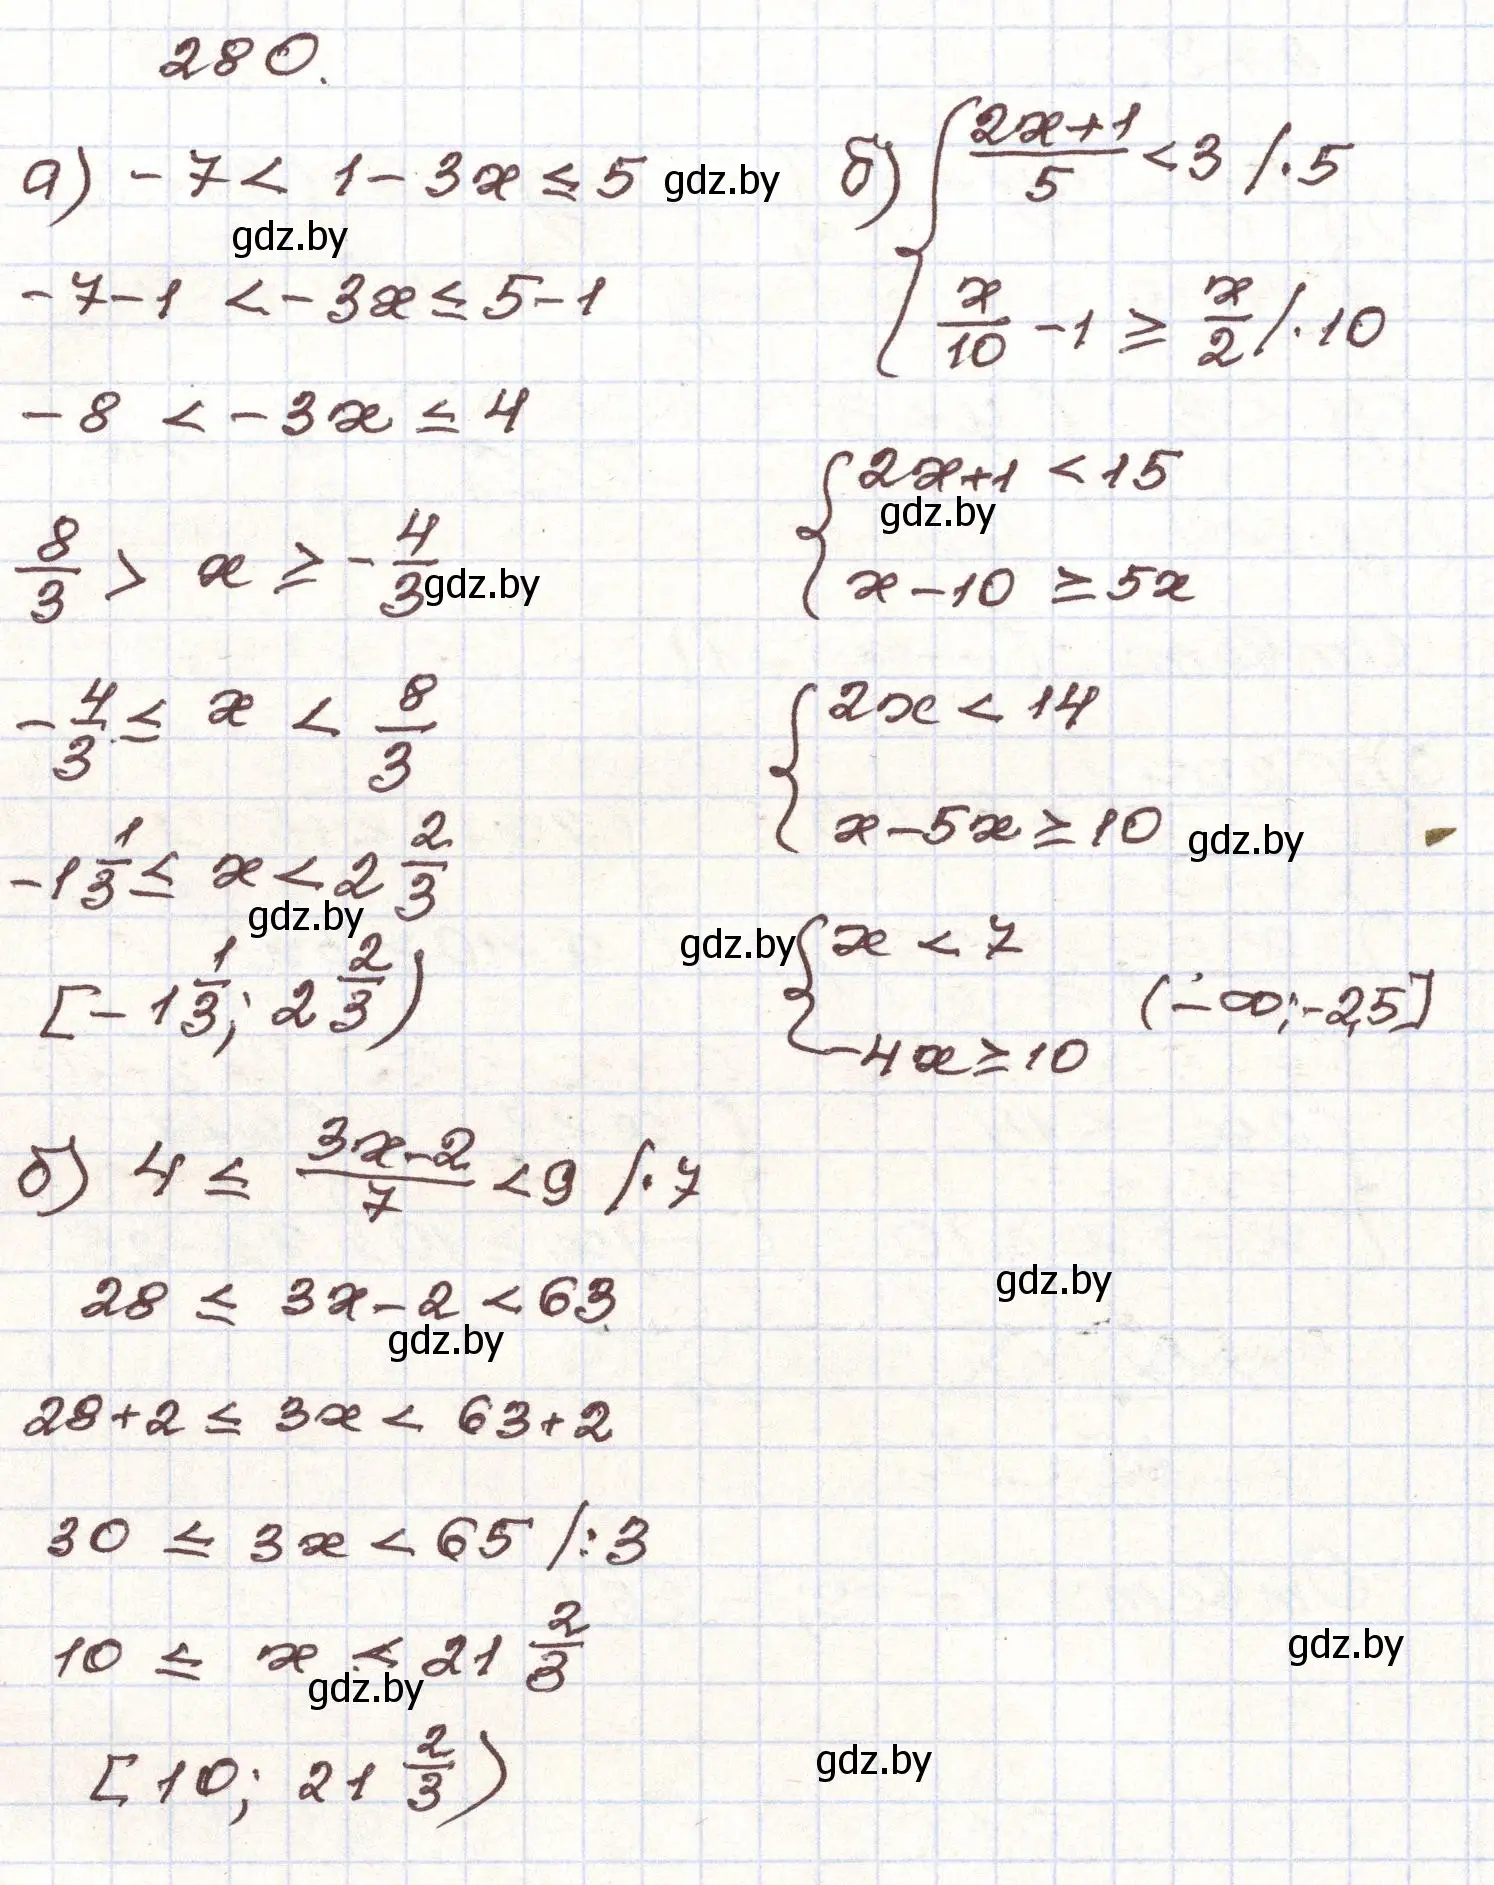 280.
а) -7 < 1 - 3x ≤ 5 gdz.by
gdz.by
-7-1 < -3x ≤ 5-1
-8 < -3x ≤ 4
8/3 > x ≥ -4/3 gdz.by
-4/3 ≤ x < 8/3
-1 1/3 ≤ x < 2 2/3
gdz.by
[-1 1/3; 2 2/3)
б) 4 ≤ (3x-2)/7 < 9 /·7
28 ≤ 3x-2 < 63
gdz.by
28+2 ≤ 3x < 63+2
30 ≤ 3x < 65 /:3
10 ≤ x < 21 2/3
gdz.by
[10; 21 2/3)
б) { (2x+1)/5 < 3 /·5
x/10 - 1 ≥ x/2 /·10
{ 2x+1 < 15
gdz.by
x-10 ≥ 5x
{ 2x < 14
x-5x ≥ 10 gdz.by
gdz.by { x < 7
-4x ≥ 10
(-∞; -2,5]
gdz.by
gdz.by
gdz.by